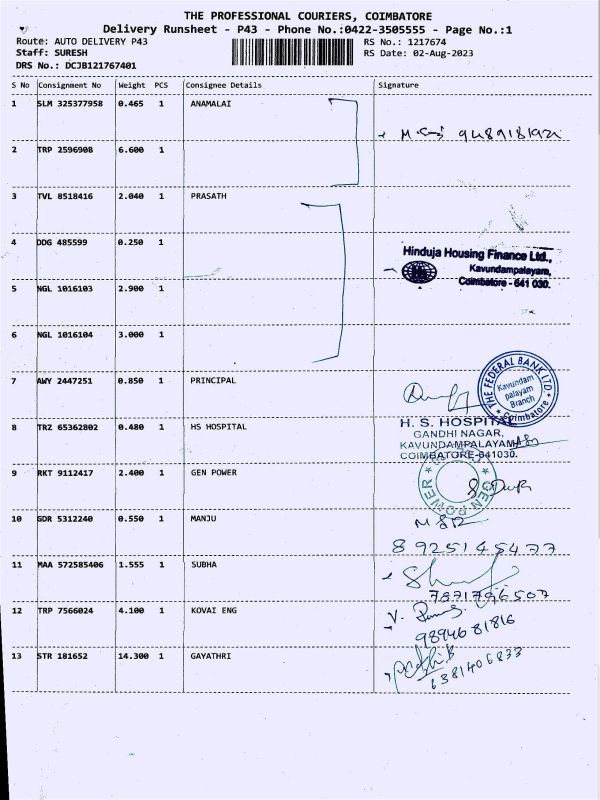 THE PROFESSIONAL COURIERS, COIMBATORE
Delivery Runsheet - P43 - Phone No.:0422-3505555 - Page No.:1
Route: AUTO DELIVERY P43 RS No.: 1217674
Staff: SURESH RS Date: 02-Aug-2023
DRS No.: DCJB121767401
S No Consignment No Weight PCS Consignee Details Signature
1 SLM 325377958 0.465 1 ANAMALAI
2 TRP 2596908 6.600 1
3 TVL 8518416 2.040 1 PRASATH
4 DDG 485599 0.250 1
Hinduja Housing Finance Ltd.,
Kavundampalayam,
Coimbatore - 641 030.
5 NGL 1016103 2.900 1
6 NGL 1016104 3.000 1
7 AWY 2447251 0.850 1 PRINCIPAL
THE FEDERAL BANK LTD
Kavundam
palayam
Branch
Coimbatore
8 TRZ 65362802 0.480 1 HS HOSPITAL
H. S. HOSPITAL
GANDHI NAGAR,
KAVUNDAMPALAYAM
COIMBATORE-641030.
9 RKT 9112417 2.400 1 GEN POWER
GEN POWER
10 GDR 5312240 0.550 1 MANJU
8925145477
11 MAA 572585406 1.555 1 SUBHA
7871796507
12 TRP 7566024 4.100 1 KOVAI ENG
9894681816
13 STR 181652 14.300 1 GAYATHRI
6381406833